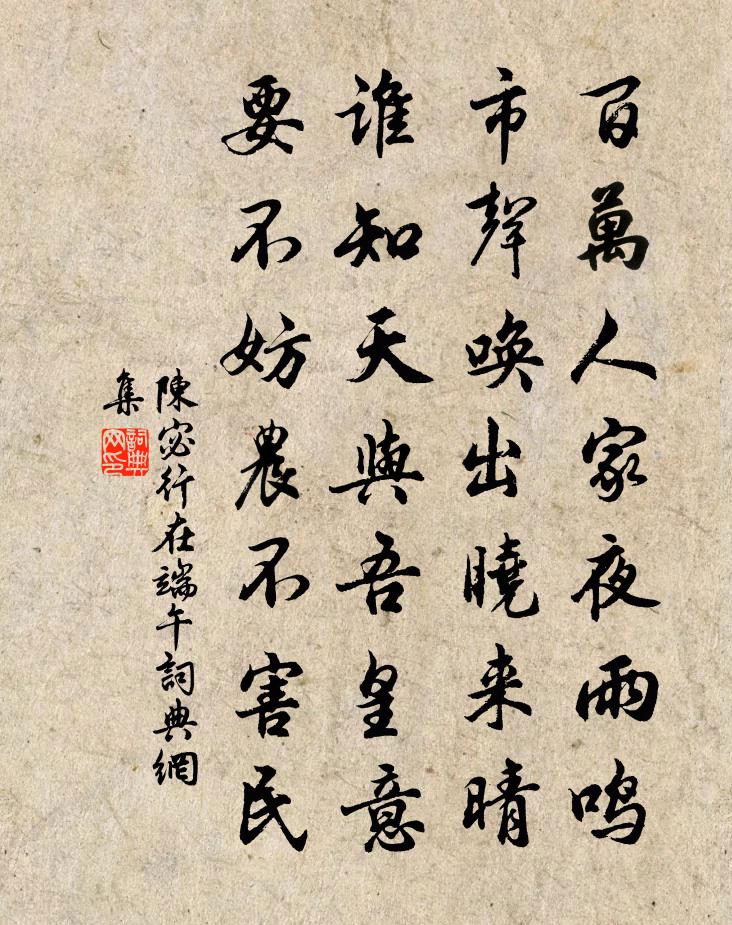 百萬人家夜雨鸣
市聲唤出曉来晴
谁知天與吾皇意
要不妨農不害民
陳宓行在端午詞典網
集
詞典
网印